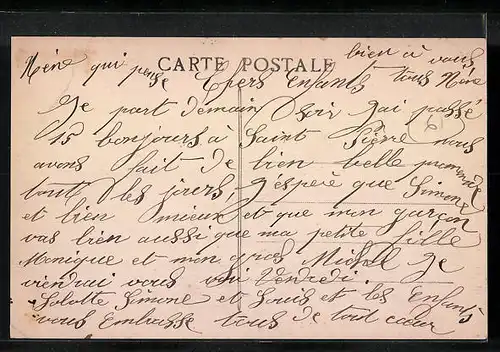 Mère qui pense CARTE POSTALE bien à vous
Chers Enfants tous Mère
Je part demain soir jai passé
15 bonjours à Saint Pierre nous
avons fait de bien belle promenade
tout les jours, j'espère que Simone
et bien mieux et que mon garçon
vas bien aussi que ma petite fille
Monique et mon gros Michel Je
viendrai vous voir Vendredi.
Lolotte Simone et Louis et les Enfants
vous Embrasse tous de tout cœur